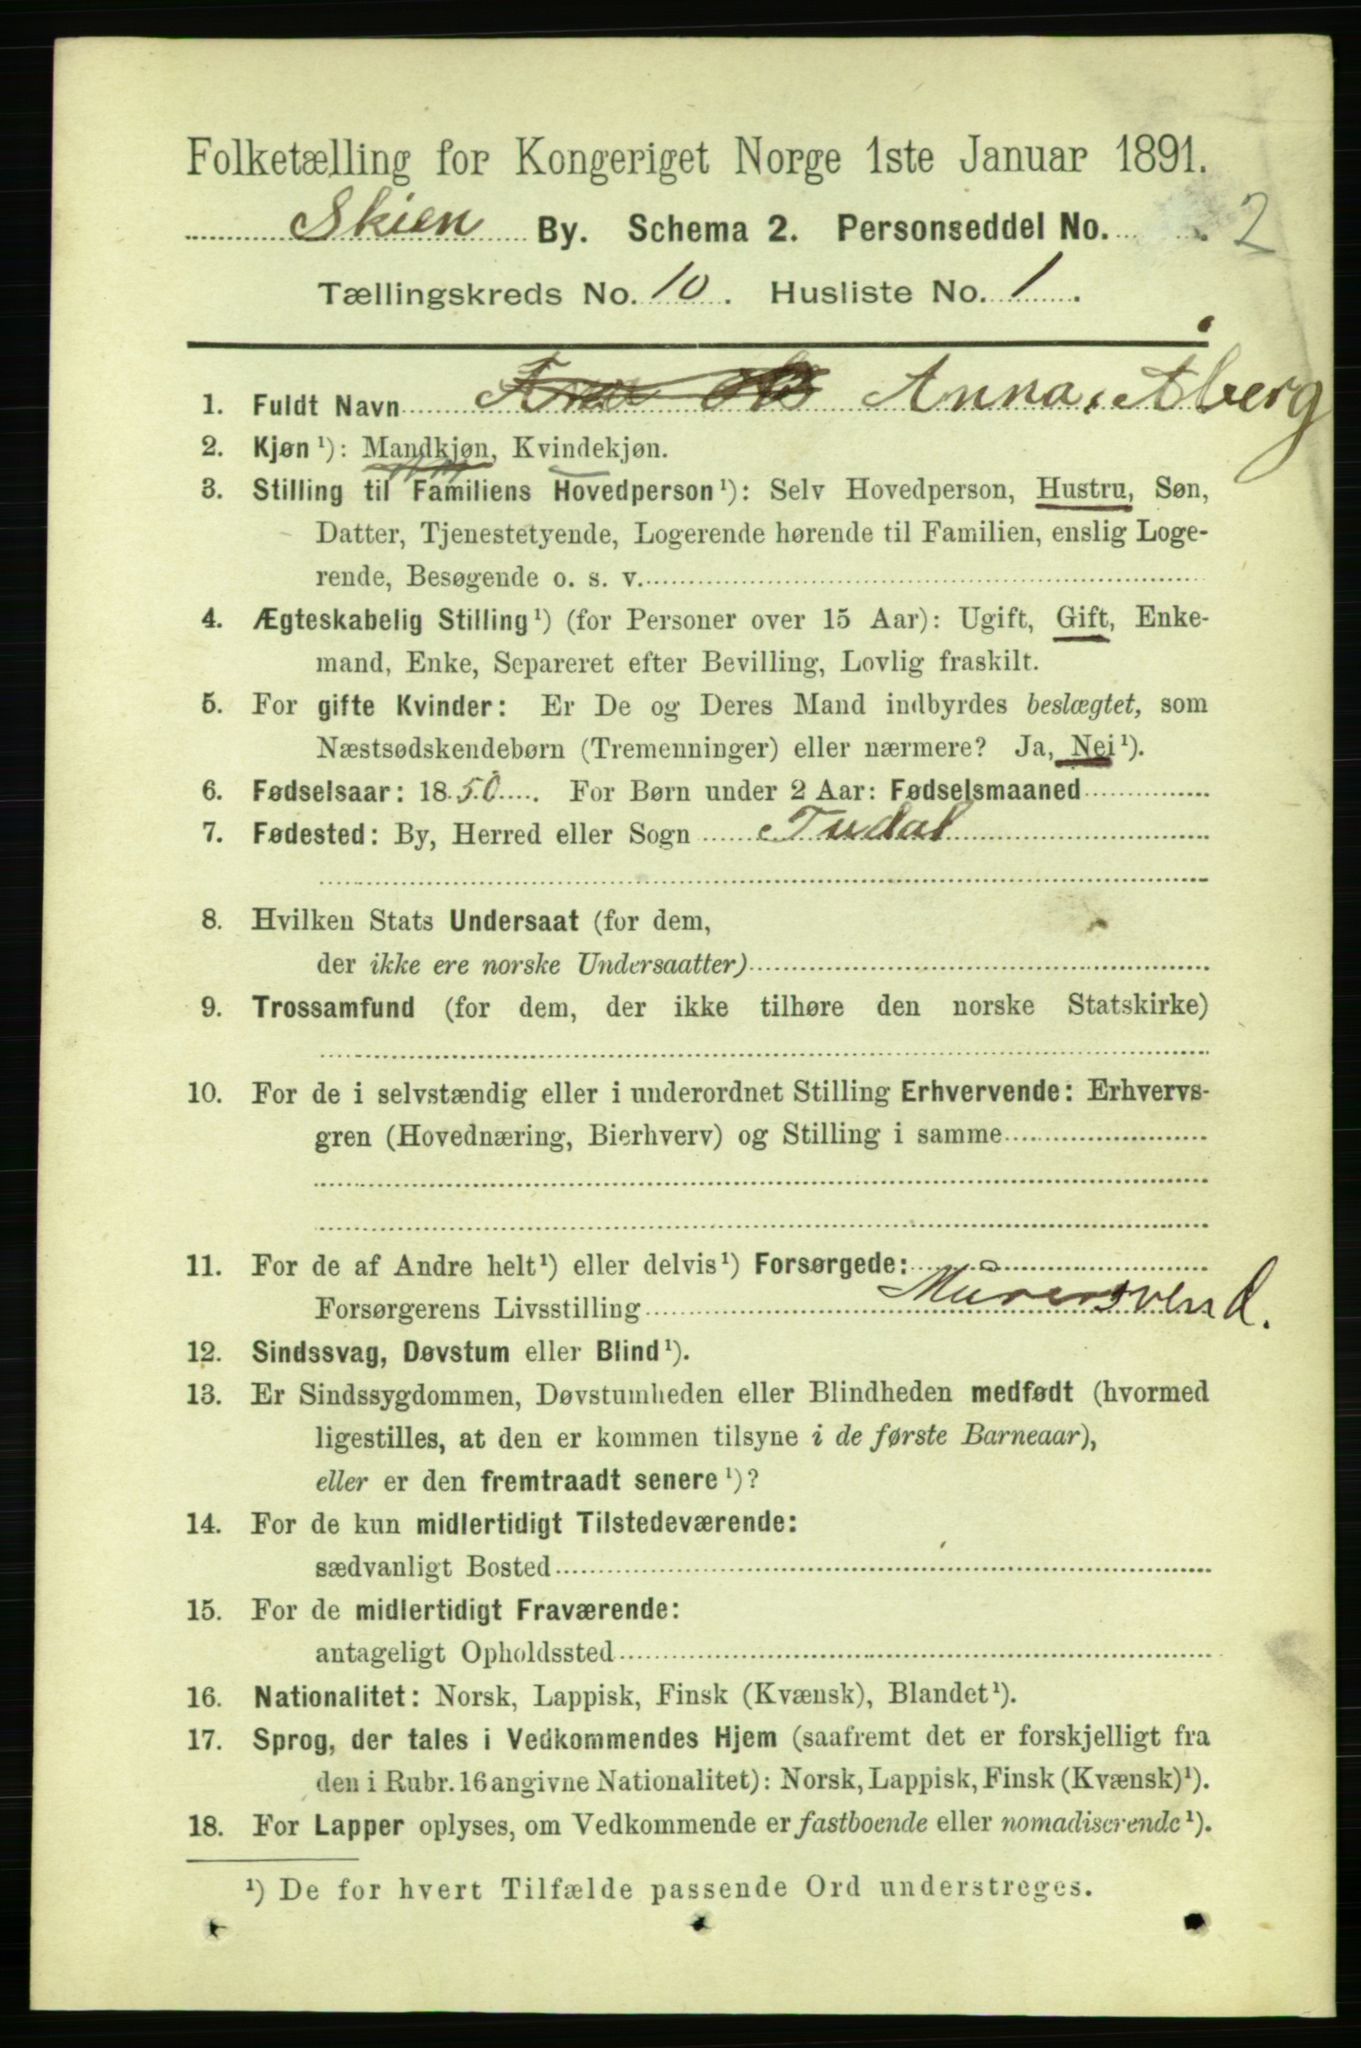 Folketælling for Kongeriget Norge 1ste Januar 1891.
Skien By. Schema 2. Personseddel No. 2
Tællingskreds No. 10. Husliste No. 1.
1. Fuldt Navn Anna Aberg
2. Kjøn ¹): Mandkjøn, Kvindekjøn.
3. Stilling til Familiens Hovedperson ¹): Selv Hovedperson, Hustru, Søn,
Datter, Tjenestetyende, Logerende hørende til Familien, enslig Loge-
rende, Besøgende o. s. v.
4. Ægteskabelig Stilling ¹) (for Personer over 15 Aar): Ugift, Gift, Enke-
mand, Enke, Separeret efter Bevilling, Lovlig fraskilt.
5. For gifte Kvinder: Er De og Deres Mand indbyrdes beslægtet, som
Næstsødskendebørn (Tremenninger) eller nærmere? Ja, Nei ¹).
6. Fødselsaar: 1850. For Børn under 2 Aar: Fødselsmaaned
7. Fødested: By, Herred eller Sogn Tudal
8. Hvilken Stats Undersaat (for dem,
der ikke ere norske Undersaatter)
9. Trossamfund (for dem, der ikke tilhøre den norske Statskirke)
10. For de i selvstændig eller i underordnet Stilling Erhvervende: Erhvervs-
gren (Hovednæring, Bierhverv) og Stilling i samme
11. For de af Andre helt ¹) eller delvis ¹) Forsørgede:
Forsørgerens Livsstilling Murersvend.
12. Sindssvag, Døvstum eller Blind ¹).
13. Er Sindssygdommen, Døvstumheden eller Blindheden medfødt (hvormed
ligestilles, at den er kommen tilsyne i de første Barneaar),
eller er den fremtraadt senere ¹)?
14. For de kun midlertidigt Tilstedeværende:
sædvanligt Bosted
15. For de midlertidigt Fraværende:
antageligt Opholdssted
16. Nationalitet: Norsk, Lappisk, Finsk (Kvænsk), Blandet ¹).
17. Sprog, der tales i Vedkommendes Hjem (saafremt det er forskjelligt fra
den i Rubr. 16 angivne Nationalitet): Norsk, Lappisk, Finsk (Kvænsk) ¹).
18. For Lapper oplyses, om Vedkommende er fastboende eller nomadiserende ¹).
¹) De for hvert Tilfælde passende Ord understreges.